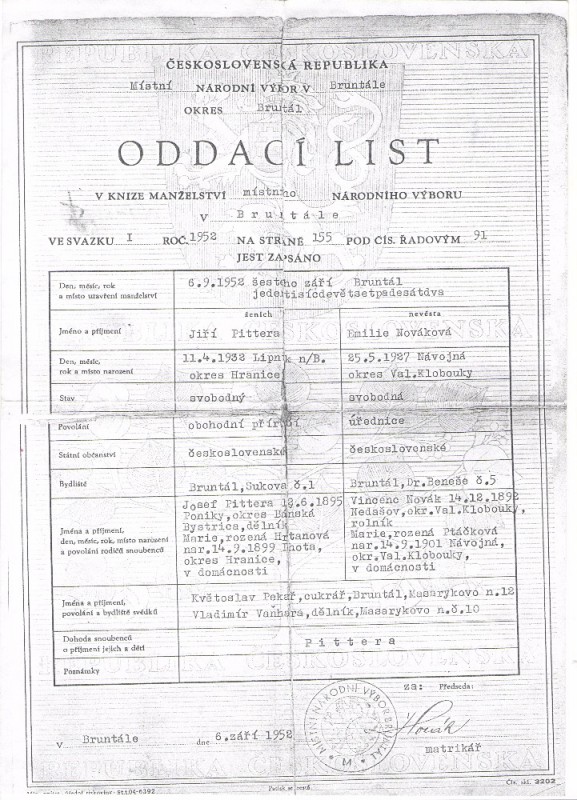 REPUBLIKA ČESKOSLOVENSKÁ
ČESKOSLOVENSKÁ REPUBLIKA
Místní NÁRODNÍ VÝBOR V Bruntále
OKRES Bruntál
ODDACÍ LIST
V KNIZE MANŽELSTVÍ místního NÁRODNÍHO VÝBORU
V Bruntále
VE SVAZKU I ROČ. 1952 NA STRANĚ 155 POD ČÍS. ŘADOVÝM 91
JEST ZAPSÁNO
Den, měsíc, rok
a místo uzavření manželství
6.9.1952 šestého září Bruntál
jedentisícdevětsetpadesátdva
ženich
nevěsta
Jméno a příjmení
Jiří Pittera
Emilie Nováková
Den, měsíc,
rok a místo narození
11.4.1932 Lipník n/B.
okres Hranice
25.5.1927 Návojná
okres Val.Klobouky
Stav
svobodný
svobodná
Povolání
obchodní
úřednice
Státní občanství
československé
československé
Bydliště
Bruntál,Sukova č.1
Bruntál,Dr.Beneše č.5
Jména a příjmení,
den, měsíc, rok, místo narození
a povolání rodičů snoubenců
Josef Pittera 18.6.1895
Poniky,okres Bánská
Bystrica,dělník
Marie,rozená Hrtanová
nar.14.9.1899 Lhota,
okres Hranice,
v domácnosti
Vincenc Novák 14.12.1892
Nedašov,okr.Val.Klobouky,
rolník
Marie,rozená Ptáčková
nar.14.9.1901 Návojná,
okr.Val.Klobouky,
v domácnosti
Jména a příjmení,
povolání a bydliště svědků
Květoslav Pekař,cukrář,Bruntál,Masarykovo n.12
Vladimír Vaňhara,dělník,Masarykovo n.č.10
Dohoda snoubenců
o příjmení jejich a dětí
Pittera
Poznámky
REPUBLIKA ČESKOSLOVENSKÁ
za: Předseda:
MÍSTNÍ NÁRODNÍ VÝBOR BRUNTÁL
M
V Bruntále dne 6.září 1952
Novák
matrikář
Čís. skl. 2202